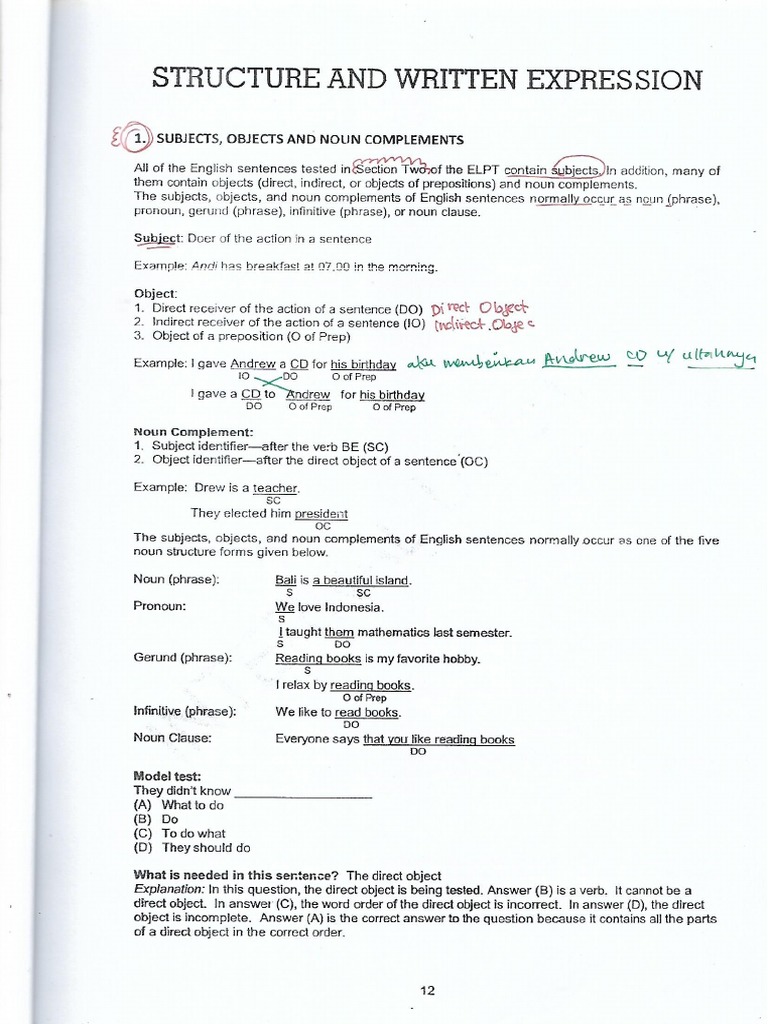 STRUCTURE AND WRITTEN EXPRESSION
1. SUBJECTS, OBJECTS AND NOUN COMPLEMENTS
All of the English sentences tested in Section Two of the ELPT contain subjects. In addition, many of
them contain objects (direct, indirect, or objects of prepositions) and noun complements.
The subjects, objects, and noun complements of English sentences normally occur as noun (phrase),
pronoun, gerund (phrase), infinitive (phrase), or noun clause.
Subject: Doer of the action in a sentence
Example: Andi has breakfast at 07.00 in the morning.
Object:
1. Direct receiver of the action of a sentence (DO) Direct Object
2. Indirect receiver of the action of a sentence (IO) Indirect Objec
3. Object of a preposition (O of Prep)
Example: I gave Andrew a CD for his birthday aku memberikan Andrew CD u/ ultahnya
IO DO O of Prep
I gave a CD to Andrew for his birthday
DO O of Prep O of Prep
Noun Complement:
1. Subject identifier—after the verb BE (SC)
2. Object identifier—after the direct object of a sentence (OC)
Example: Drew is a teacher.
SC
They elected him president
OC
The subjects, objects, and noun complements of English sentences normally occur as one of the five
noun structure forms given below.
Noun (phrase): Bali is a beautiful island.
S SC
Pronoun: We love Indonesia.
S
I taught them mathematics last semester.
S DO
Gerund (phrase): Reading books is my favorite hobby.
S
I relax by reading books.
O of Prep
Infinitive (phrase): We like to read books.
DO
Noun Clause: Everyone says that you like reading books
DO
Model test:
They didn't know ____________________
(A) What to do
(B) Do
(C) To do what
(D) They should do
What is needed in this sentence? The direct object
Explanation: In this question, the direct object is being tested. Answer (B) is a verb. It cannot be a
direct object. In answer (C), the word order of the direct object is incorrect. In answer (D), the direct
object is incomplete. Answer (A) is the correct answer to the question because it contains all the parts
of a direct object in the correct order.
12